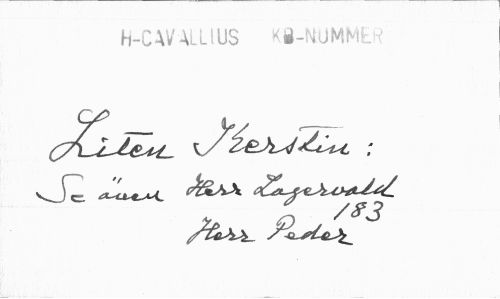 H-CAVALLIUS KB-NUMMER
Liten Kerstin:
Se även Herr Lagervald
183
Herr Peder